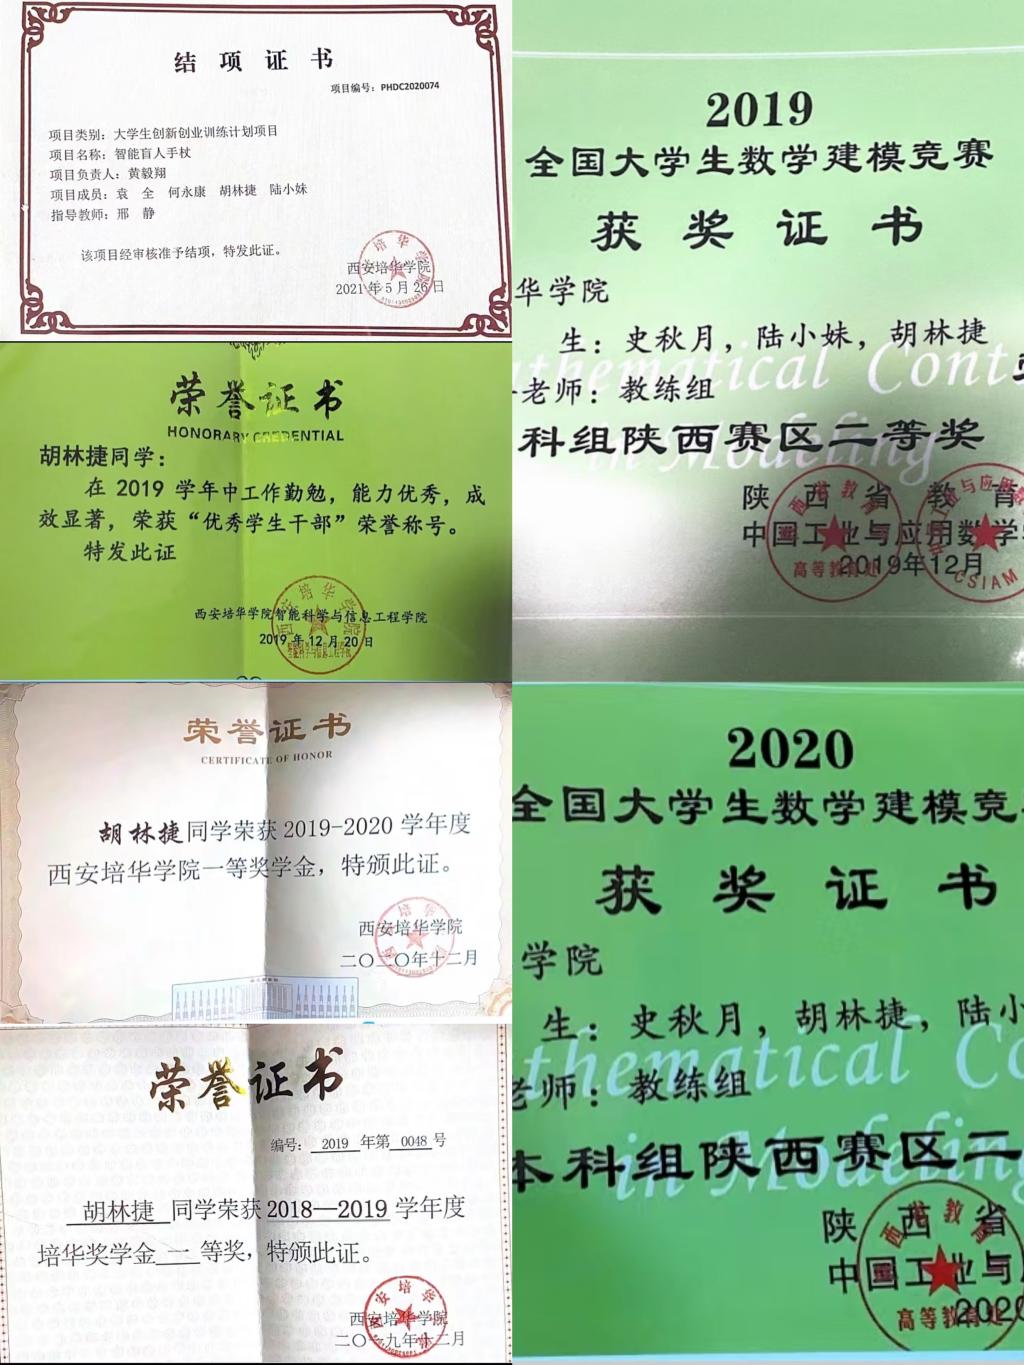 结项证书
项目编号：PHDC2020074
项目类别：大学生创新创业训练计划项目
项目名称：智能盲人手杖
项目负责人：黄毅翔
项目成员：袁 全 何永康 胡林捷 陆小妹
指导教师：邢 静
该项目经审核准予结项，特发此证。
西安培华学院
2021年5月26日
荣誉证书
HONORARY CREDENTIAL
胡林捷同学：
在 2019 学年中工作勤勉，能力优秀，成
效显著，荣获“优秀学生干部”荣誉称号。
特发此证
西安培华学院智能科学与信息工程学院
2019年12月20日
荣誉证书
CERTIFICATE OF HONOR
胡林捷同学荣获2019-2020 学年度
西安培华学院一等奖学金，特颁此证。
西安培华学院
二〇二〇年十二月
荣誉证书
编号： 2019 年第 0048 号
胡林捷 同学荣获 2018—2019 学年度
培华奖学金 一 等奖，特颁此证。
西安培华学院
二〇一九年十二月
2019
全国大学生数学建模竞赛
获奖证书
华学院
生：史秋月，陆小妹，胡林捷
老师：教练组
科组陕西赛区二等奖
Mathematical Cont
in Modeling
陕西省教育
中国工业与应用数学
2019年12月
高等教育处
CSIAM
2020
全国大学生数学建模竞
获奖证书
学院
生：史秋月，胡林捷，陆小
老师：教练组
本科组陕西赛区二
thematical Co
in Modeling
陕西省
中国工业与
2020
高等教育处